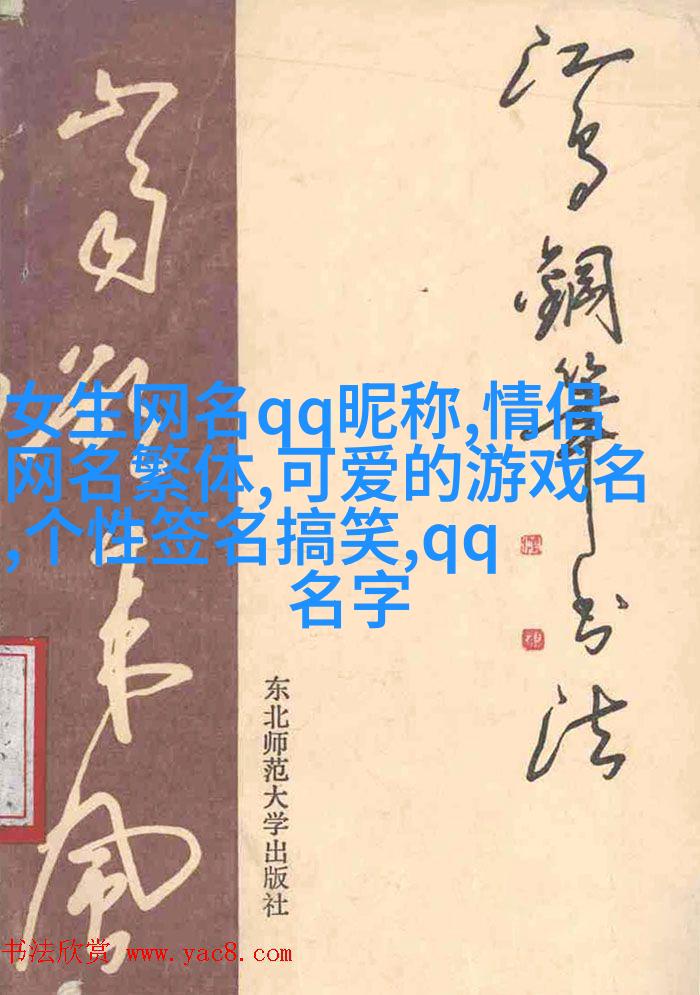 江鸟鋼筆书法
女生网名qq昵称,情侣
网名繁体,可爱的游戏名
,个性签名搞笑,qq
名字
东北师范大学出版社
书法欣赏 www.yac8.com